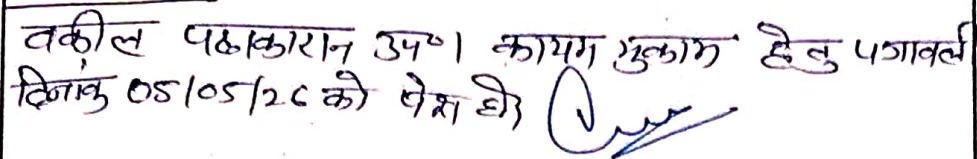 वकील पक्षकारान उप०। कायम मुकाम हेतु पत्रावली
दिनांक 05/05/26 को पेश हो।